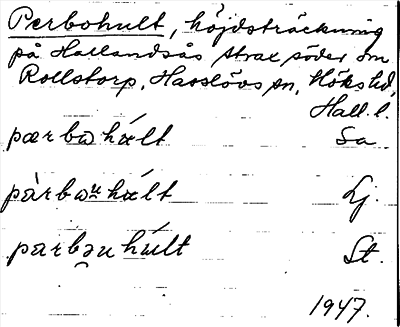 Perbohult, höjdsträckning
på Hallandsås strax söder om
Rollstorp, Hasslövs sn, Höks hd,
Hall. l.
pærbω húlt Sa.
pàrbωᵤ húlt Lj.
parbəu húlt St.
1947.